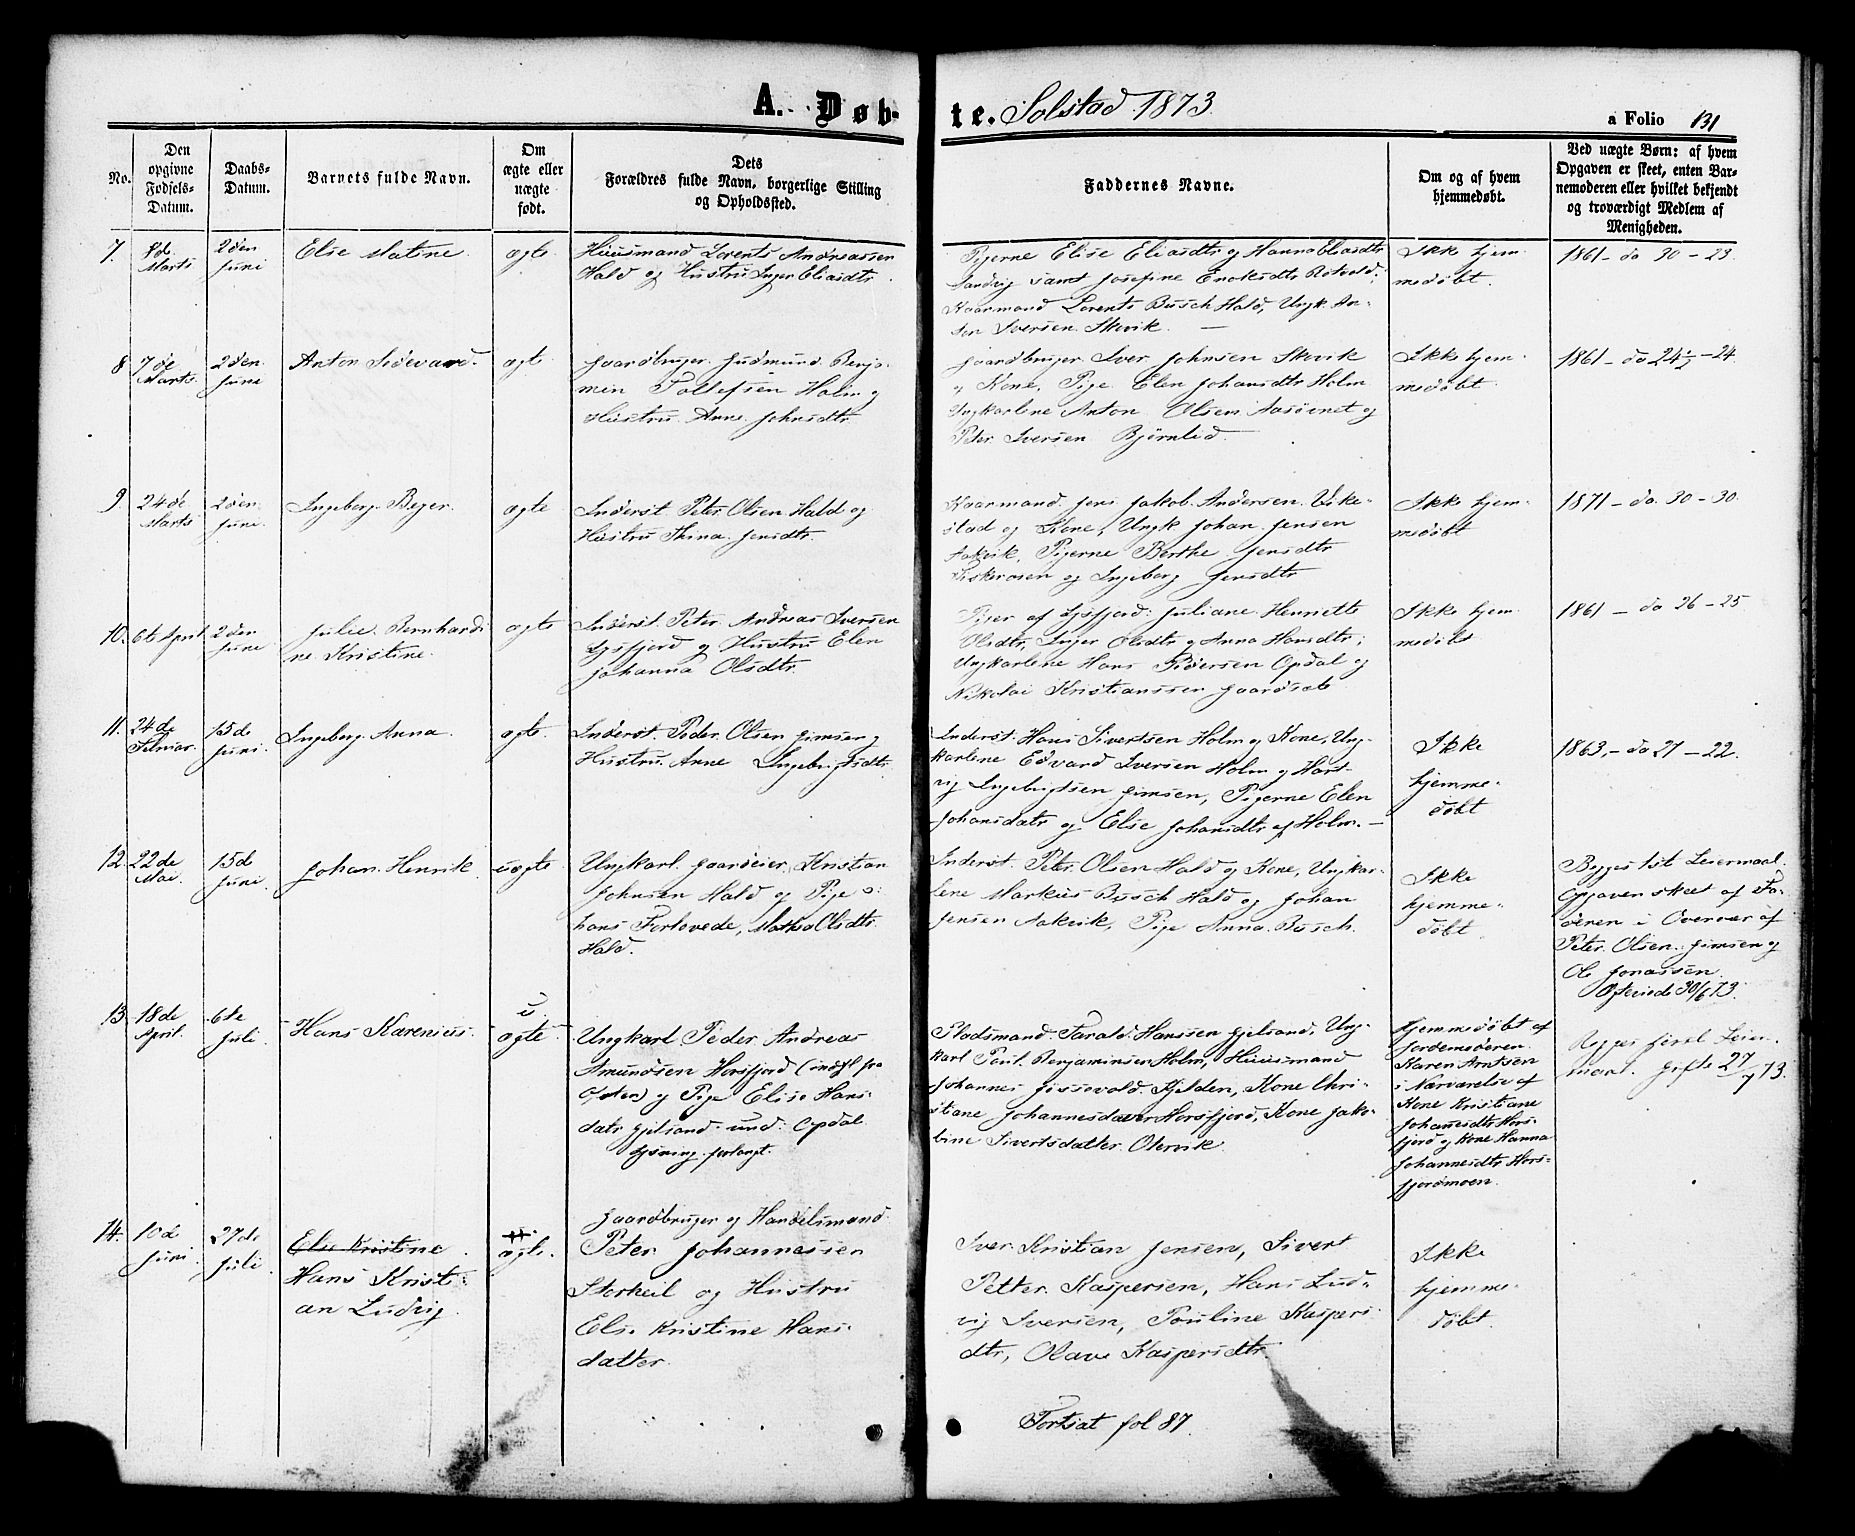 A. Døb-
te. Solstad 1873.
a Folio 131
No.
Den
opgivne
Fødsels-
Datum.
Daabs-
Datum.
Barnets fulde Navn.
Om
ægte eller
uægte
født.
Dets
Forældres fulde Navn, borgerlige Stilling
og Opholdssted.
Faddernes Navne.
Om og af hvem
hjemmedøbt.
Ved uægte Børn: af hvem
Opgaven er skeet, enten Bar-
nemoderen eller hvilket bekjendt
og troværdigt Medlem af
Menigheden.
7.
8de
Marts
2den
Juni
Else Martine.
ægte.
Huusmand Lorents Andreassen
Hald og Hustru Inger Eliasdtr.
Pigerne Elise Eliasdtr og Hanna Eliasdtr
Sandvig samt Josefine Enoksdtr
Kaarmand Lorents Busch Hald, Ungk. An-
ders Iversen Skevik. —
Ikke hjem-
medøbt.
1861 - da 30 - 23.
8
7de
Marts.
2den
Juni
Anton Sedevard.
ægte
Gaardbruger Gudmund Benja-
min Tollefsen Holm og
Hustru Anne Johnsdtr.
Gaardbruger Iver Johnsen Skevik
og Kone, Pige Elen Johansdtr Holm
Ungkarlene Anton Olsen Aasøvnet og
Peter Iversen Bjørnlid.
Ikke hjem-
medøbt.
1861 - da 24½ - 24
9
24de
Marts
2den
Juni
Ingeberg Beyer.
ægte
Inderst Peter Olsen Hald og
Hustru Thina Jensdtr.
Kaarmand Jens Jakob Andersen Vike-
stad og Kone, Ungk Johan Jensen
Aakvik, Pigerne Berthe Jensdtr
og Ingeberg Jensdtr
Ikke hjem-
medøbt
1871 - da 30 - 30.
10.
6te April
2den
Juni
Julie Bernhardi-
ne Kristine.
ægte
Inderst. Peter Andreas Iversen
Lysfjord og Hustru Elen
Johanna Olsdtr.
Piger af Lysfjord: Juliane Henriette
Olsdtr, Inger Olsdtr og Anna Hansdtr;
Ungkarlene Hans Pedersen Opdal og
Nikolai Kristianssen Gaardsete
Ikke hjem-
medøbt
1861 - da 26 - 25
11.
24de
Februar.
15de
Juni.
Ingeberg Anna.
ægte.
Inderst. Peder Olsen Gimsen og
Hustru Anne Ingebrigtsdtr.
Inderst. Hans Sivertsen Holm og Kone, Ung-
karlene Edvard Iversen Holm og Hart-
vig Ingebrigtsen Gimsen, Pigerne Elen
Johansdatr og Else Johansdtr af Holm. —
Ikke
hjemme-
døbt
1863, - da 27 - 22.
12.
22de
Mai.
15d
Juni
Johan Henrik.
uægte
Ungkarl. Gaardeier Kristian
Johnsen Hald og Pige o:
hans Forlovede, Olsdtr
Hald.
Inderst. Peter Olsen Hald og Kone, Ungkar-
lene Markus Busch Hald og Johan
Jensen Aakvik, Pige Anna Busch.
Ikke
hjemme-
døbt.
Begges 1st Leiermaal.
Opgaven skeet af Fa-
deren i Overvær af
Peter Olsen Gimsen og
Ole Jonassen.
30/6 73.
13.
18de
April.
6te
Juli
Hans Karenius.
u
ægte
Ungkarl Peder Andreas
Amundsen Horsfjord (indft fra
) og Pige Elise Hans-
datr Gjelsand und: Opdal.
Lysning forlangt.
Pladsmand Harald Hanssen Gjelsand, Ung-
karl Paul Benjaminsen Holm, Huusmand
Johannes Kjelden, Kone Chri-
stiane Johannesdatter Horsfjord, Kone Jako-
bine Sivertsdatter Olervik.
Hjemmedøbt af
Jordemoderen
Karen Arntsen
i Nærværelse af
Kone Kristiane
Johannesdtr Hors-
fjord og Kone Hanna
Johannesdtr Hors-
fjordmoen.
Begges første Leier-
maal. gifte 27/7 73.
14.
10d
Juni.
27de
Juli
Else Kristine.
Hans Kristi-
an Ludvig.
ægte.
Gaardbruger og Handelsmand
Peter Johannessen
Storheil og Hustru
Else Kristine Hans-
datter.
Iver Kristian Jensen, Sivert
Petter Kaspersen, Hans Lud-
vig Iversen, Pouline Kaspers-
dtr, Olave Kaspersdtr.
Ikke
hjemme-
døbt.
Fortsat fol 87.